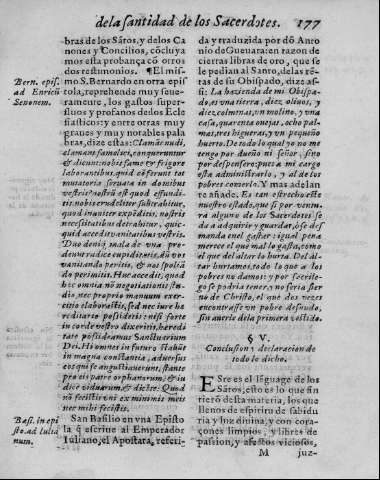 de la santidad de los Sacerdotes. 177
bras de los Sātos, y de los Ca
nones y Concilios, cōcluya
mos esta probança cō otros
dos testimonios. ¶ El mis-
mo S. Bernardo en otra epis
tola, reprehende muy seue-
ramente, los gastos super-
fluos y profanos de los Ecle
siasticos: y entre otras muy
graues y muy notables pala
bras, dize estas: Clamāt nudi,
clamant famelici, conqueruntur
& dicunt: nobis fame & frigore
laborantibus, quid cōferunt tot
mutatoria seruata in domibus
vestris? nostrū est quod effundi-
tis: nobis crudeliter subtrahitur,
quod inaniter expēditis. nostris
necessitatibus detrahitur, quic-
quid accedit vanitatibus vestris.
Duo deniq; mala de vna pro-
deunt radice cupiditatis, dū vos
vanitando peritis, & nos spoliā
do perimitis. Huc accedit; quod
hec omnia nō negotiationis stu-
dio, nec proprio manuum exer-
citio elaborastis, sed nec iure he
reditario possidetis: nisi forte
in corde vestro dixeritis, heredi
tate possideamus Sanctuarium
Dei. Hi omnes in futuro stabūt
in magna constantia, aduersus
eos qui se angustiauerunt, stante
pro eis patre orphanorum, & iu
dice viduarum, & dicēte: Quod
nō fecistis vni ex minimis meis
nec mihi fecistis.
San Basilio en vna Episto
la q̄ escriue al Emperador
Iuliano, el Apostata, referi-
Bern. epis.
ad Enricū
Senonem.
Basi. in epi
sto. ad Iulia
num.
da y traduzida por dō Anto
nio de Gueuara: en razon de
ciertas libras de oro, que se
le pedian al Santo, de las rē-
tas de su Obispado, dize as-
si: La hazienda de mi Obispa-
do, es vna tierra, diez oliuos, y
diez colmenas, vn molino, y vna
casa, quarenta ouejas, ocho pal-
mas, tres higueras, y vn pequeño
huerto. De todo lo qual yo no me
tengo por dueño ni señor, sino
por despensero: pues a mi cargo
esta administrarlo, y al de los
pobres comerlo. Y mas adelan
te añade. Es tan estrecho este
nuestro estado, que si por ventu
ra alguno de los Sacerdotes se
da a adquirir y guardar, ò se des
manda en el gastar: igual pena
merece el que mal lo gasta, como
el que del altar lo hurta. Del al-
tar hurtamos, todo lo que a los
pobres no damos: y por sacrile-
go se podria tener, y no seria sier
uo de Christo, el que dos vezes
encontrasse vn pobre desnudo,
sin auerle dela primera vestido.
§ V.
Conclusion y declaracion de
todo lo dicho.
ESte es el lēguage de los
Sātos, esto es lo que siē
tierō desta materia, los que
llenos de espiritu de sabidu
ria y luz diuina, y con cora-
çones limpios, y libres de
passion, y afectos viciosos,
M juz-